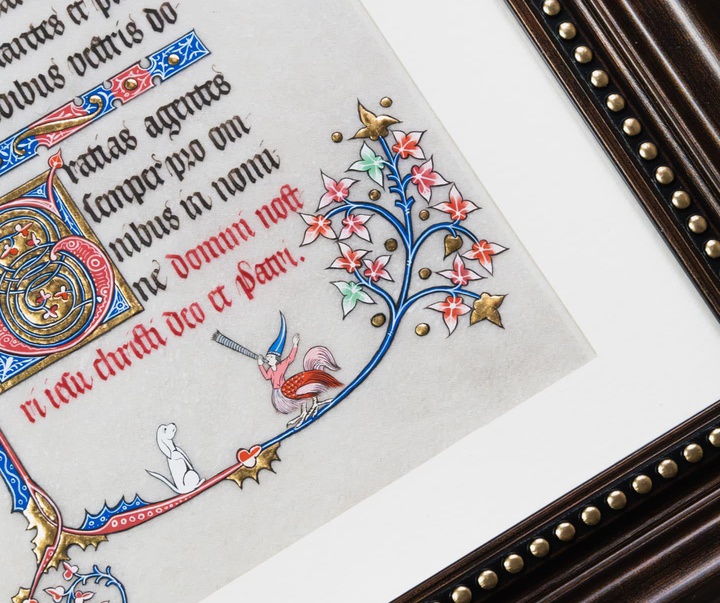 et
dibus vestris do
Gratias agentes
semper pro om
nibus in nomi
ne domini nost
ri iesu christi deo et patri.